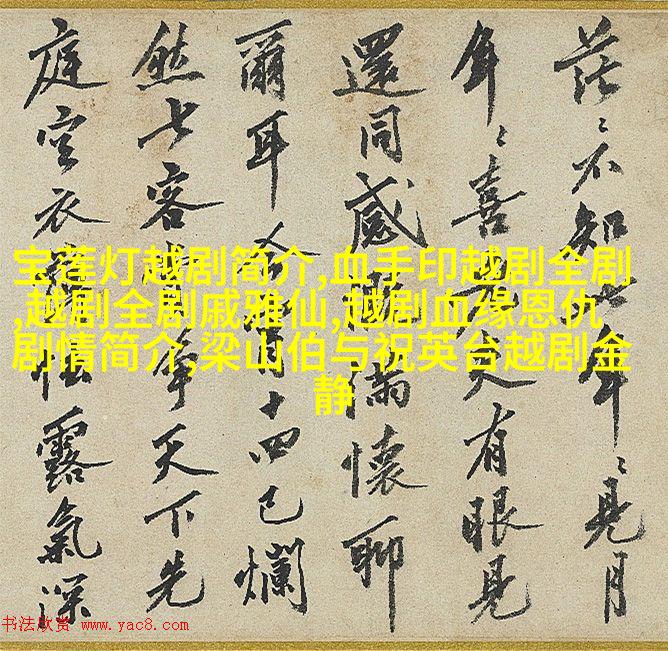 茫〻不知年〻見月
年〻喜天有眼見
還同感滿懷聊
爾耳今宵十四已爛
然七客爭天下先
庭空衣怯露氣深
宝莲灯越剧简介,血手印越剧全剧
,越剧全剧戚雅仙,越剧血缘恩仇
剧情简介,梁山伯与祝英台越剧金
静
书法欣赏 www.yac8.com